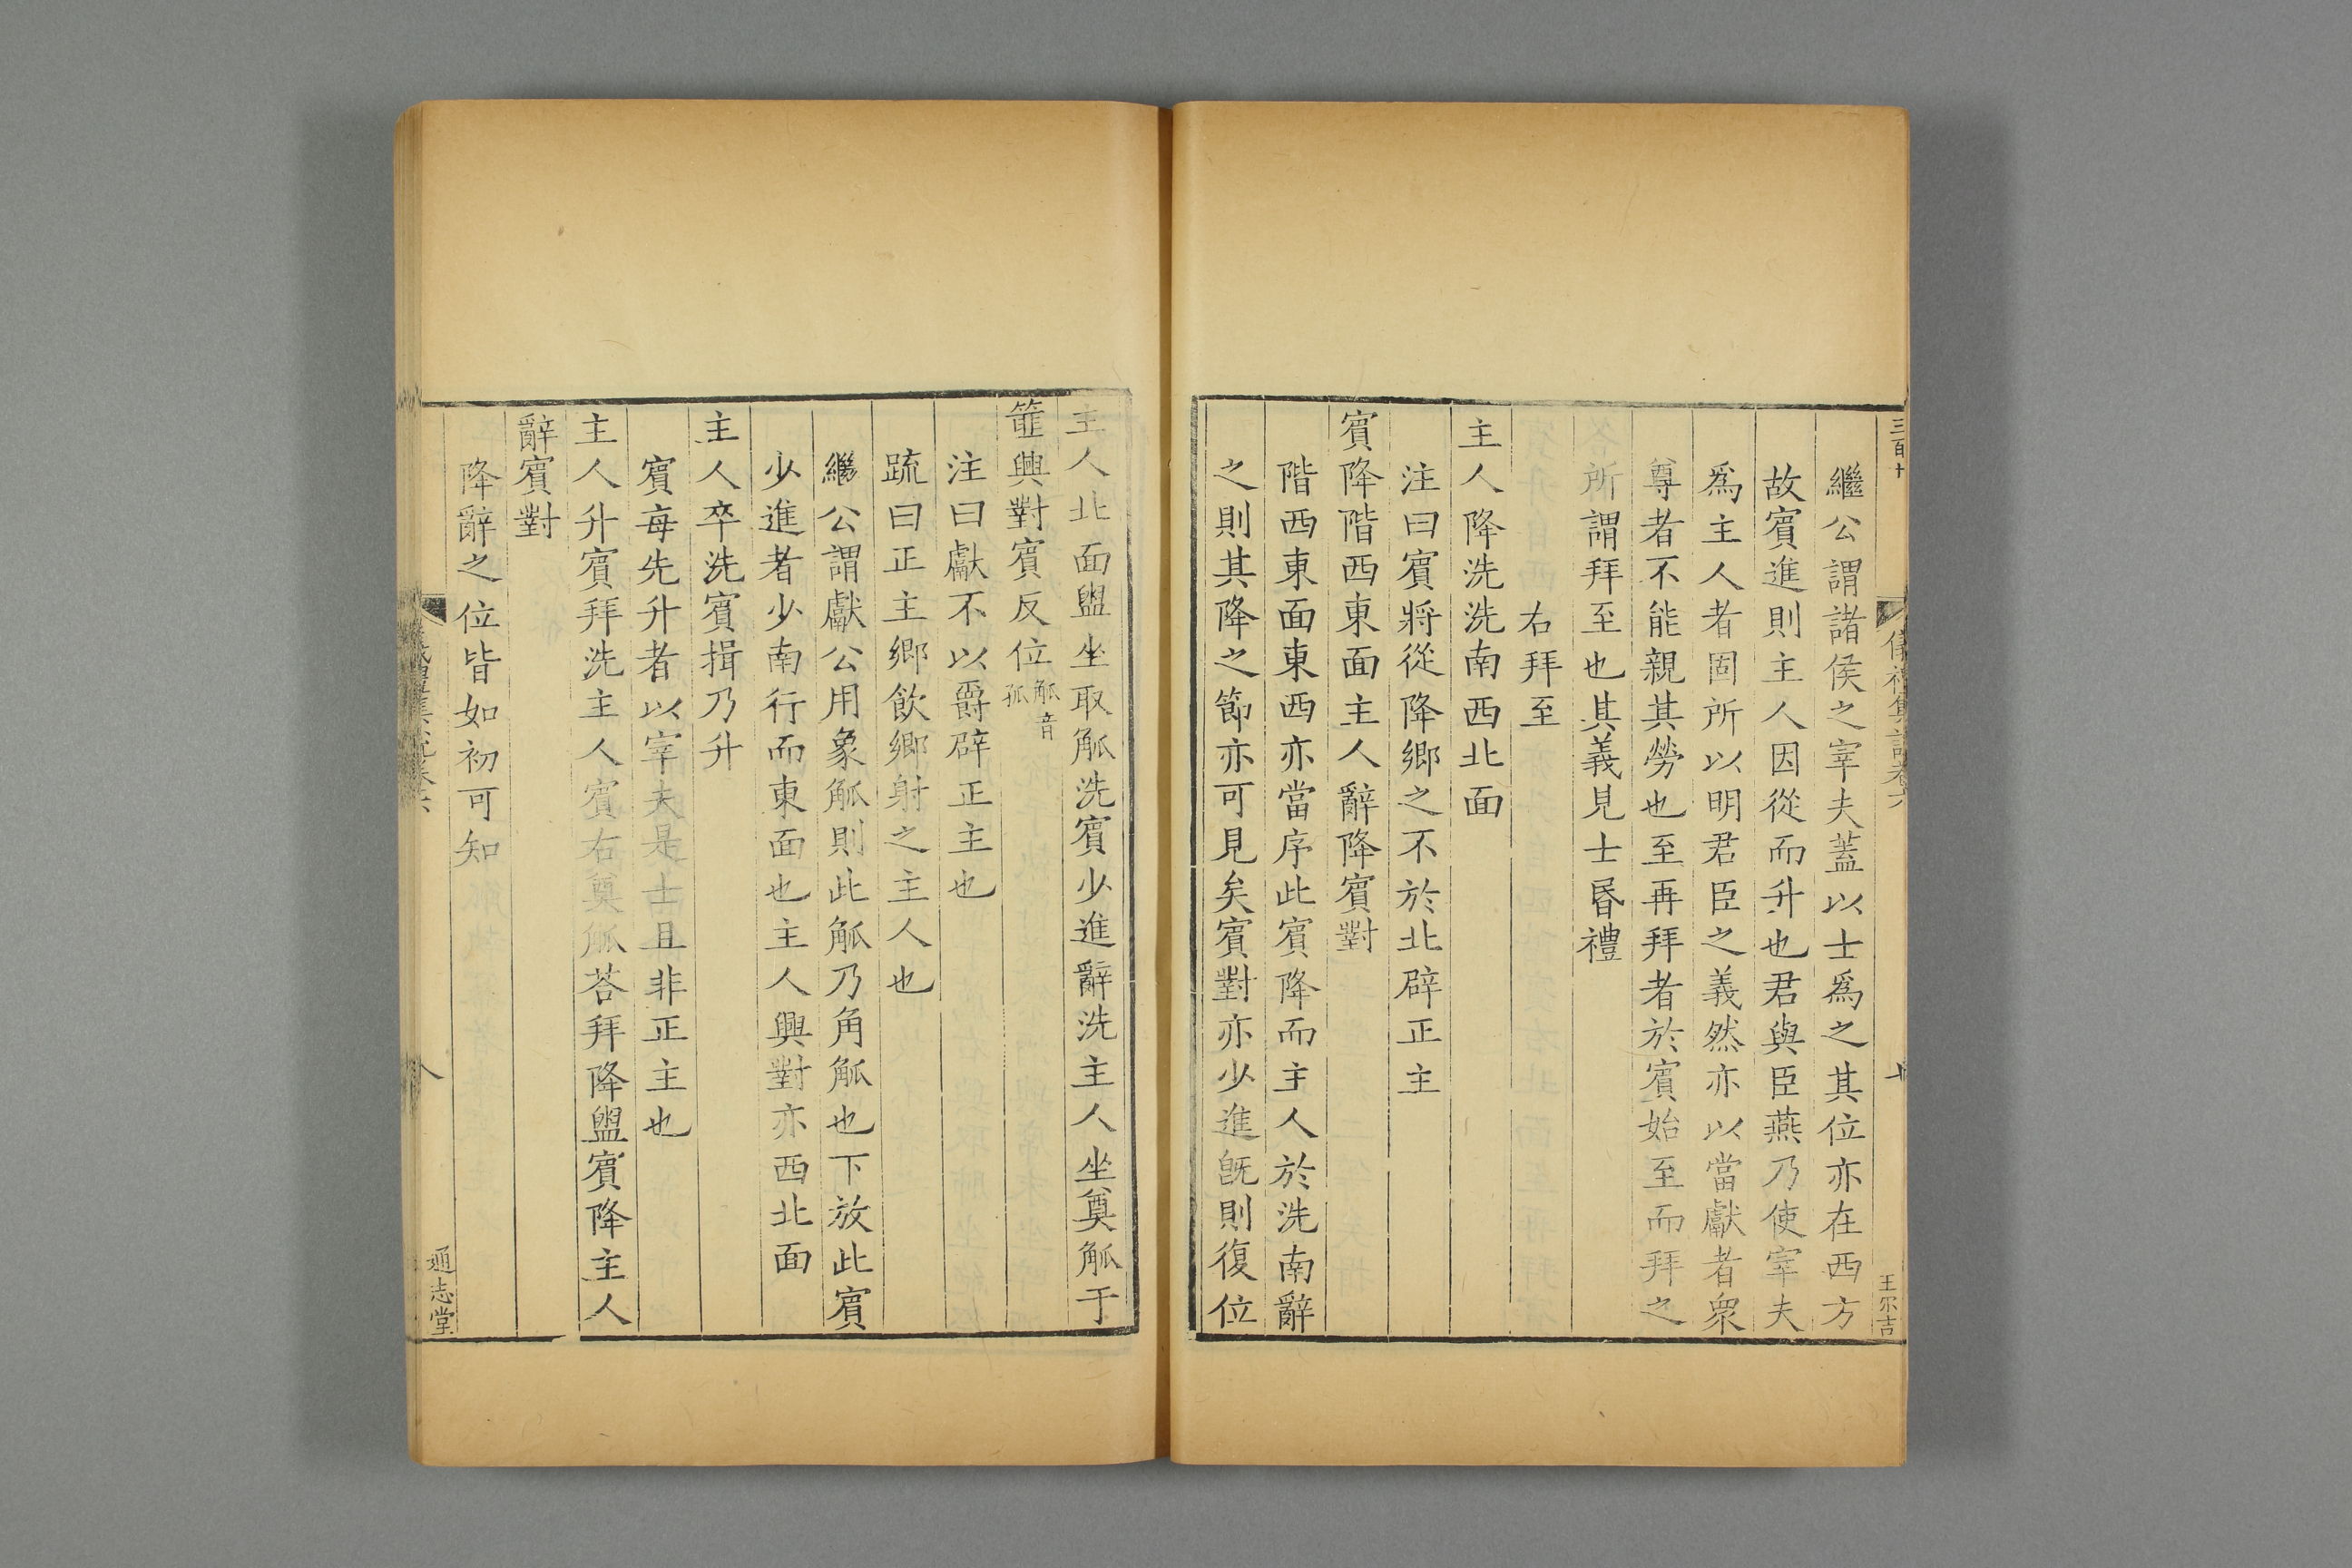 繼公謂諸侯之宰夫蓋以士爲之其位亦在西方
故賓進則主人因從而升也君與臣燕乃使宰夫
爲主人者固所以明君臣之義然亦以當獻者衆
尊者不能親其勞也至再拜者於賓始至而拜之
所謂拜至也其義見士昬禮
右拜至
主人降洗洗南西北面
注曰賓將從降鄉之不於北辟正主
賓降階西東面主人辭降賓對
階西東面東西亦當序此賓降而主人於洗南辭
之則其降之節亦可見矣賓對亦少進旣則復位
主人北面盥坐取觚洗賓少進辭洗主人坐奠觚于
篚興對賓反位觚音孤
注曰獻不以爵辟正主也
疏曰正主鄉飲鄉射之主人也
繼公謂獻公用象觚則此觚乃角觚也下放此賓
少進者少南行而東面也主人興對亦西北面
主人卒洗賓揖乃升
賓每先升者以宰夫是士且非正主也
主人升賓拜洗主人賓右奠觚荅拜降盥賓降主人
辭賓對
降辭之位皆如初可知
通志堂